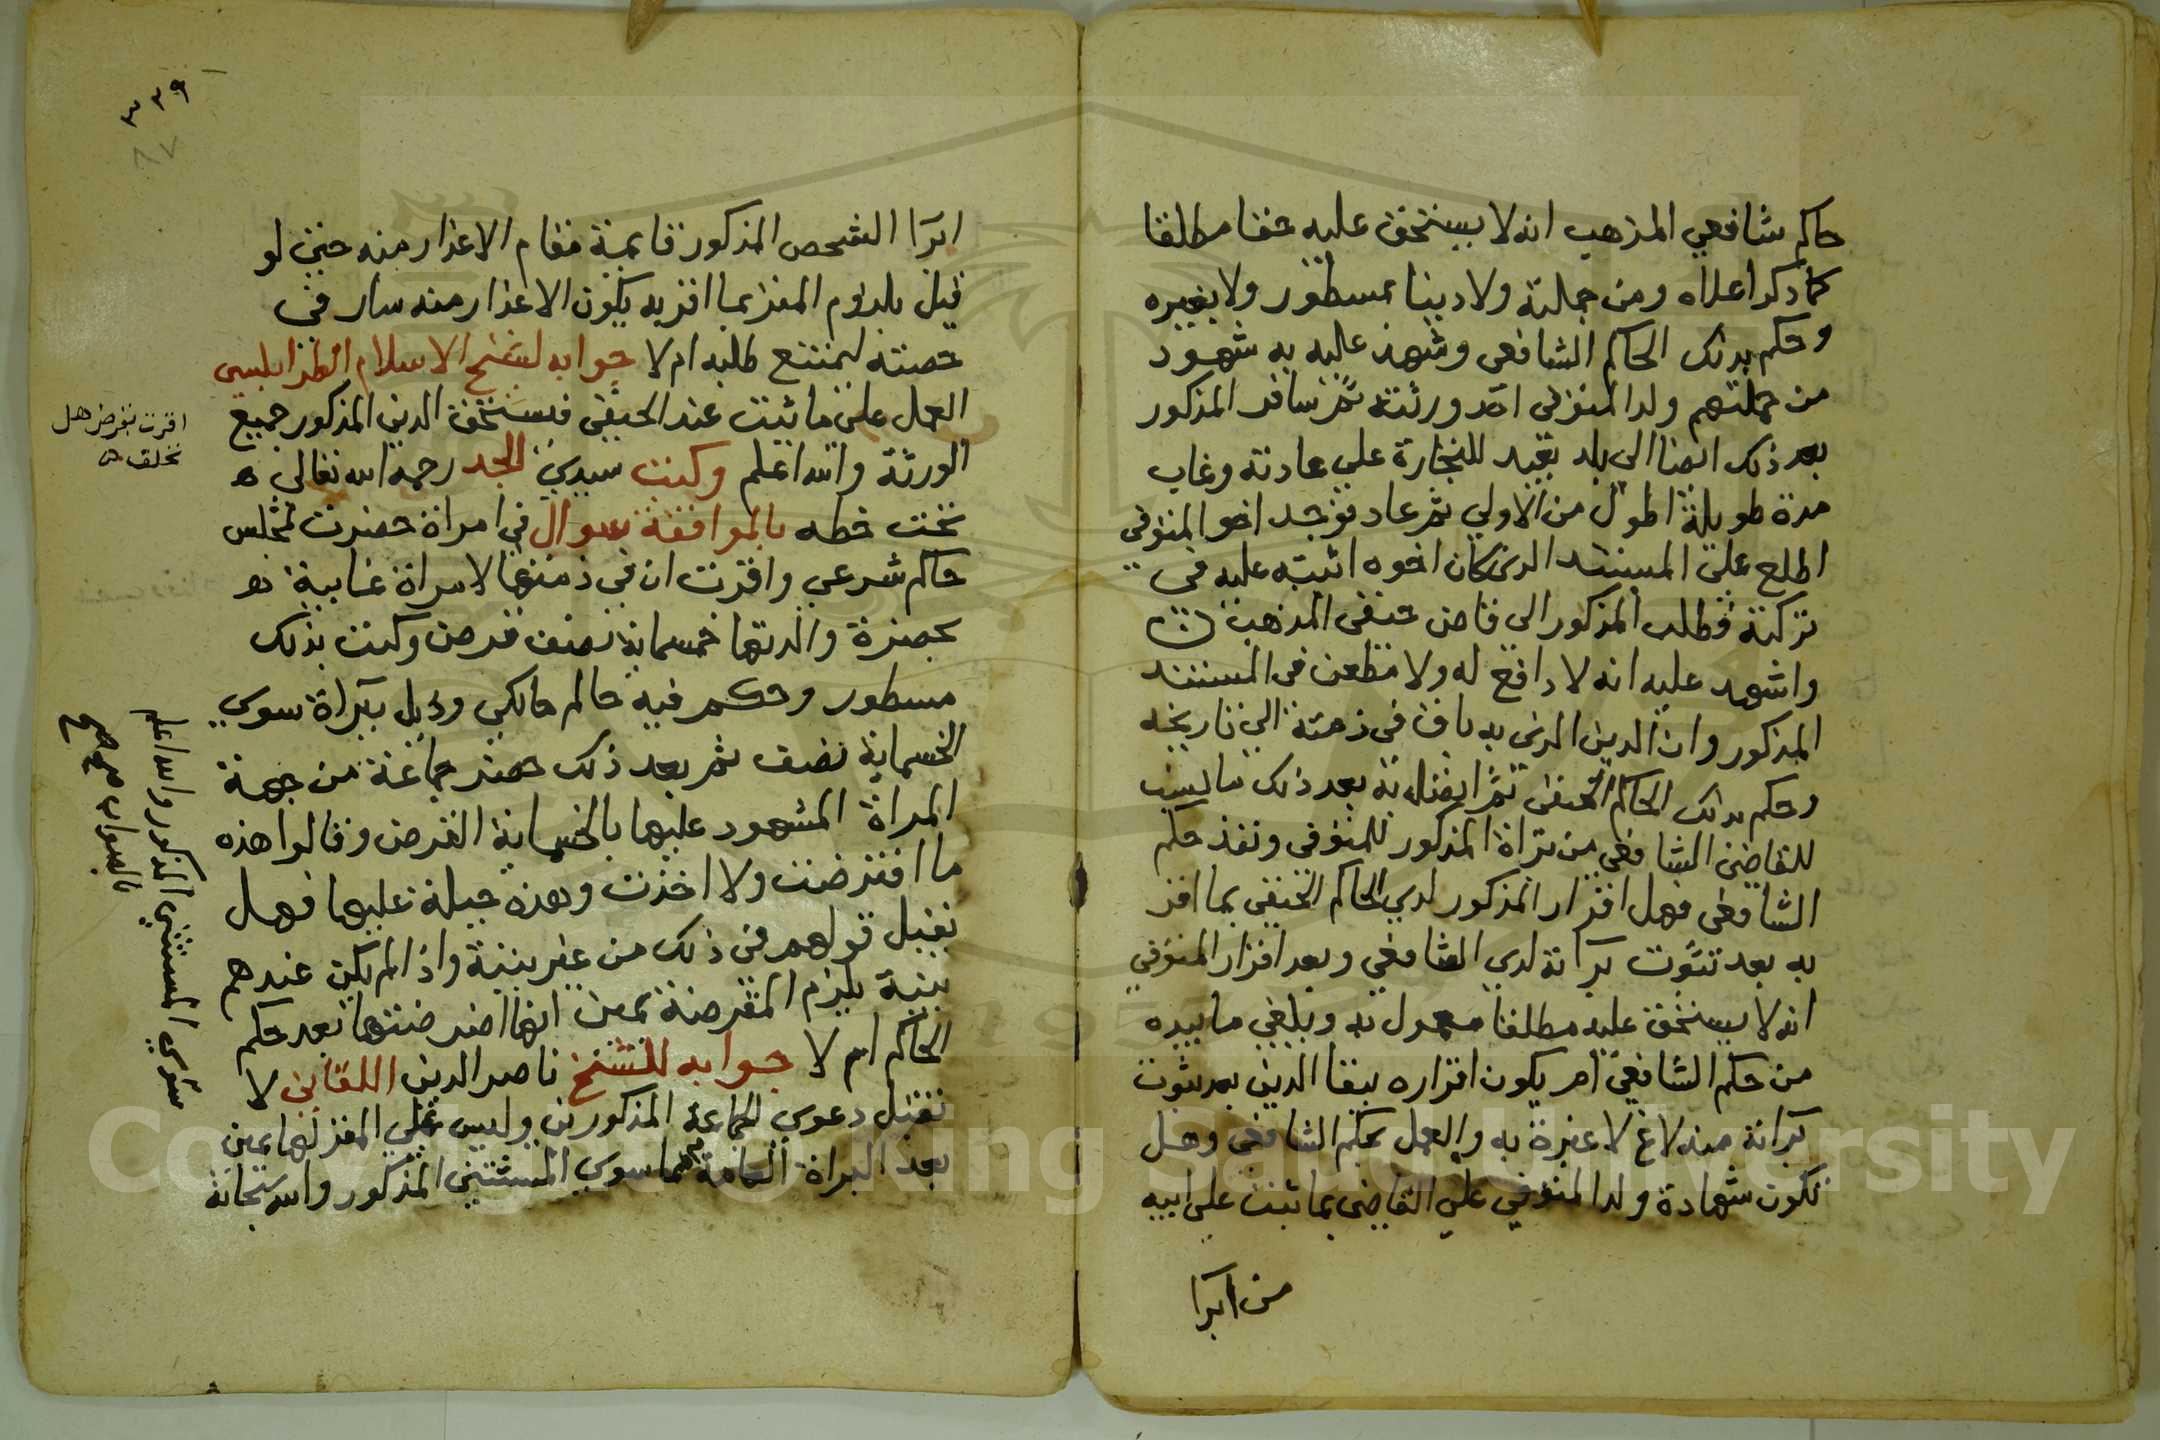 حاكم شافعي المذهب انه لا يستحق عليه حقا مطلقا
كما ذكر اعلاه ومن جملته ولا دينا بمسطور ولا بغيره
وحكم بذلك الحاكم الشافعي وشهد عليه به شهود
من جملتهم ولد المتوفي احد ورثته ثم سافر المذكور
بعد ذلك ايضا الى بلد بعيد للتجارة علي عادته وغاب
مدة طويلة اطول من الاولي ثم عاد فوجد اخو المتوفي
اطلع علي المستند الذي كان اخوه اثبته عليه في
تركته فطلب المذكور الى قاض حنفي المذهب
واشهد عليه انه لا دافع له ولا مطعن في المستند
المذكور وان الدين الذي به باق في ذمته الي تاريخه
وحكم بذلك الحاكم الحنفي ثم ايضا بعد ذلك
للقاضي الشافعي من براة المذكور للمتوفي ونفذ حكم
الشافعي فهل اقرار المذكور لدي الحاكم الحنفي بما اقر
به بعد ثبوت براته لدي الشافعي وبعد اقرار المتوفي
انه لا يستحق عليه مطلقا معمول به ويلغي ما بيده
من حكم الشافعي ام يكون اقراره ببقا الدين بعد ثبوت
براته منه لاغ لا عبرة به والعمل بحكم الشافعي وهل
تكون شهادة ولد المتوفي علي القاضي بما ثبت علي ابيه
من ابرا
٣٣٩
٦٧
ابرا الشخص المذكور قايمة مقام الاعذار منه حتى لو
قيل بلزوم المقر بما اقر به يكون الاعذار منه سار في
حصته ليمتنع طلبه ام لا جوابه لشيخ الاسلام الطرابلسي
العمل علي ما ثبت عند الحنفي فيستحق الدين المذكور جميع
الورثة والله اعلم وكتب سيدي الجد رحمه الله تعالى
تحت خطه بالموافقة سوال في امراة حضرت لمجلس
حاكم شرعي واقرت ان في ذمتها لامراة غايبة
بحضرة والدتها خمسماية نصف قرض وكتب بذلك
مسطور وحكم فيه حاكم مالكي وذيل ببراة سوي
الخسماية نصف ثم بعد ذلك حضر جماعة من جهة
المراة المشهود عليها بالخسماية القرض وقالوا هذه
ما اقترضت ولا اخذت وهذه حيلة عليها فهل
تقبل قولهم في ذلك من غير بينة واذا لم يكن عندهم
بينة يلزم المقرضة يمين انها اقرضتها بعد حكم
الحاكم ام لا جوابه للشيخ ناصر الدين اللقاني لا
تقبل دعوي الجماعة المذكورين وليس علي المقر لها يمين
بعد البراة العامة مما سوي المستثني المذكور والله سبحانه
اقرت بقرض هل
تحلف
سوي المستثني المذكور والله اعلم
بالصواب